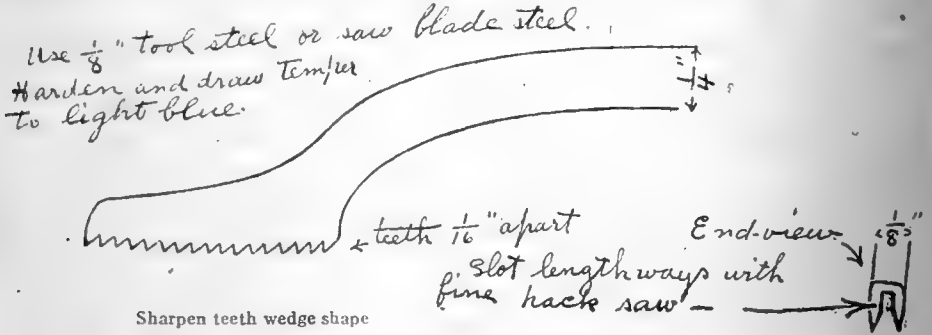 Use 1/8" tool steel or saw blade steel.
Harden and draw temper
to light blue.
1/4"
teeth 1/16" apart
End-view
1/8"
Slot lengthways with
fine hack saw
Sharpen teeth wedge shape